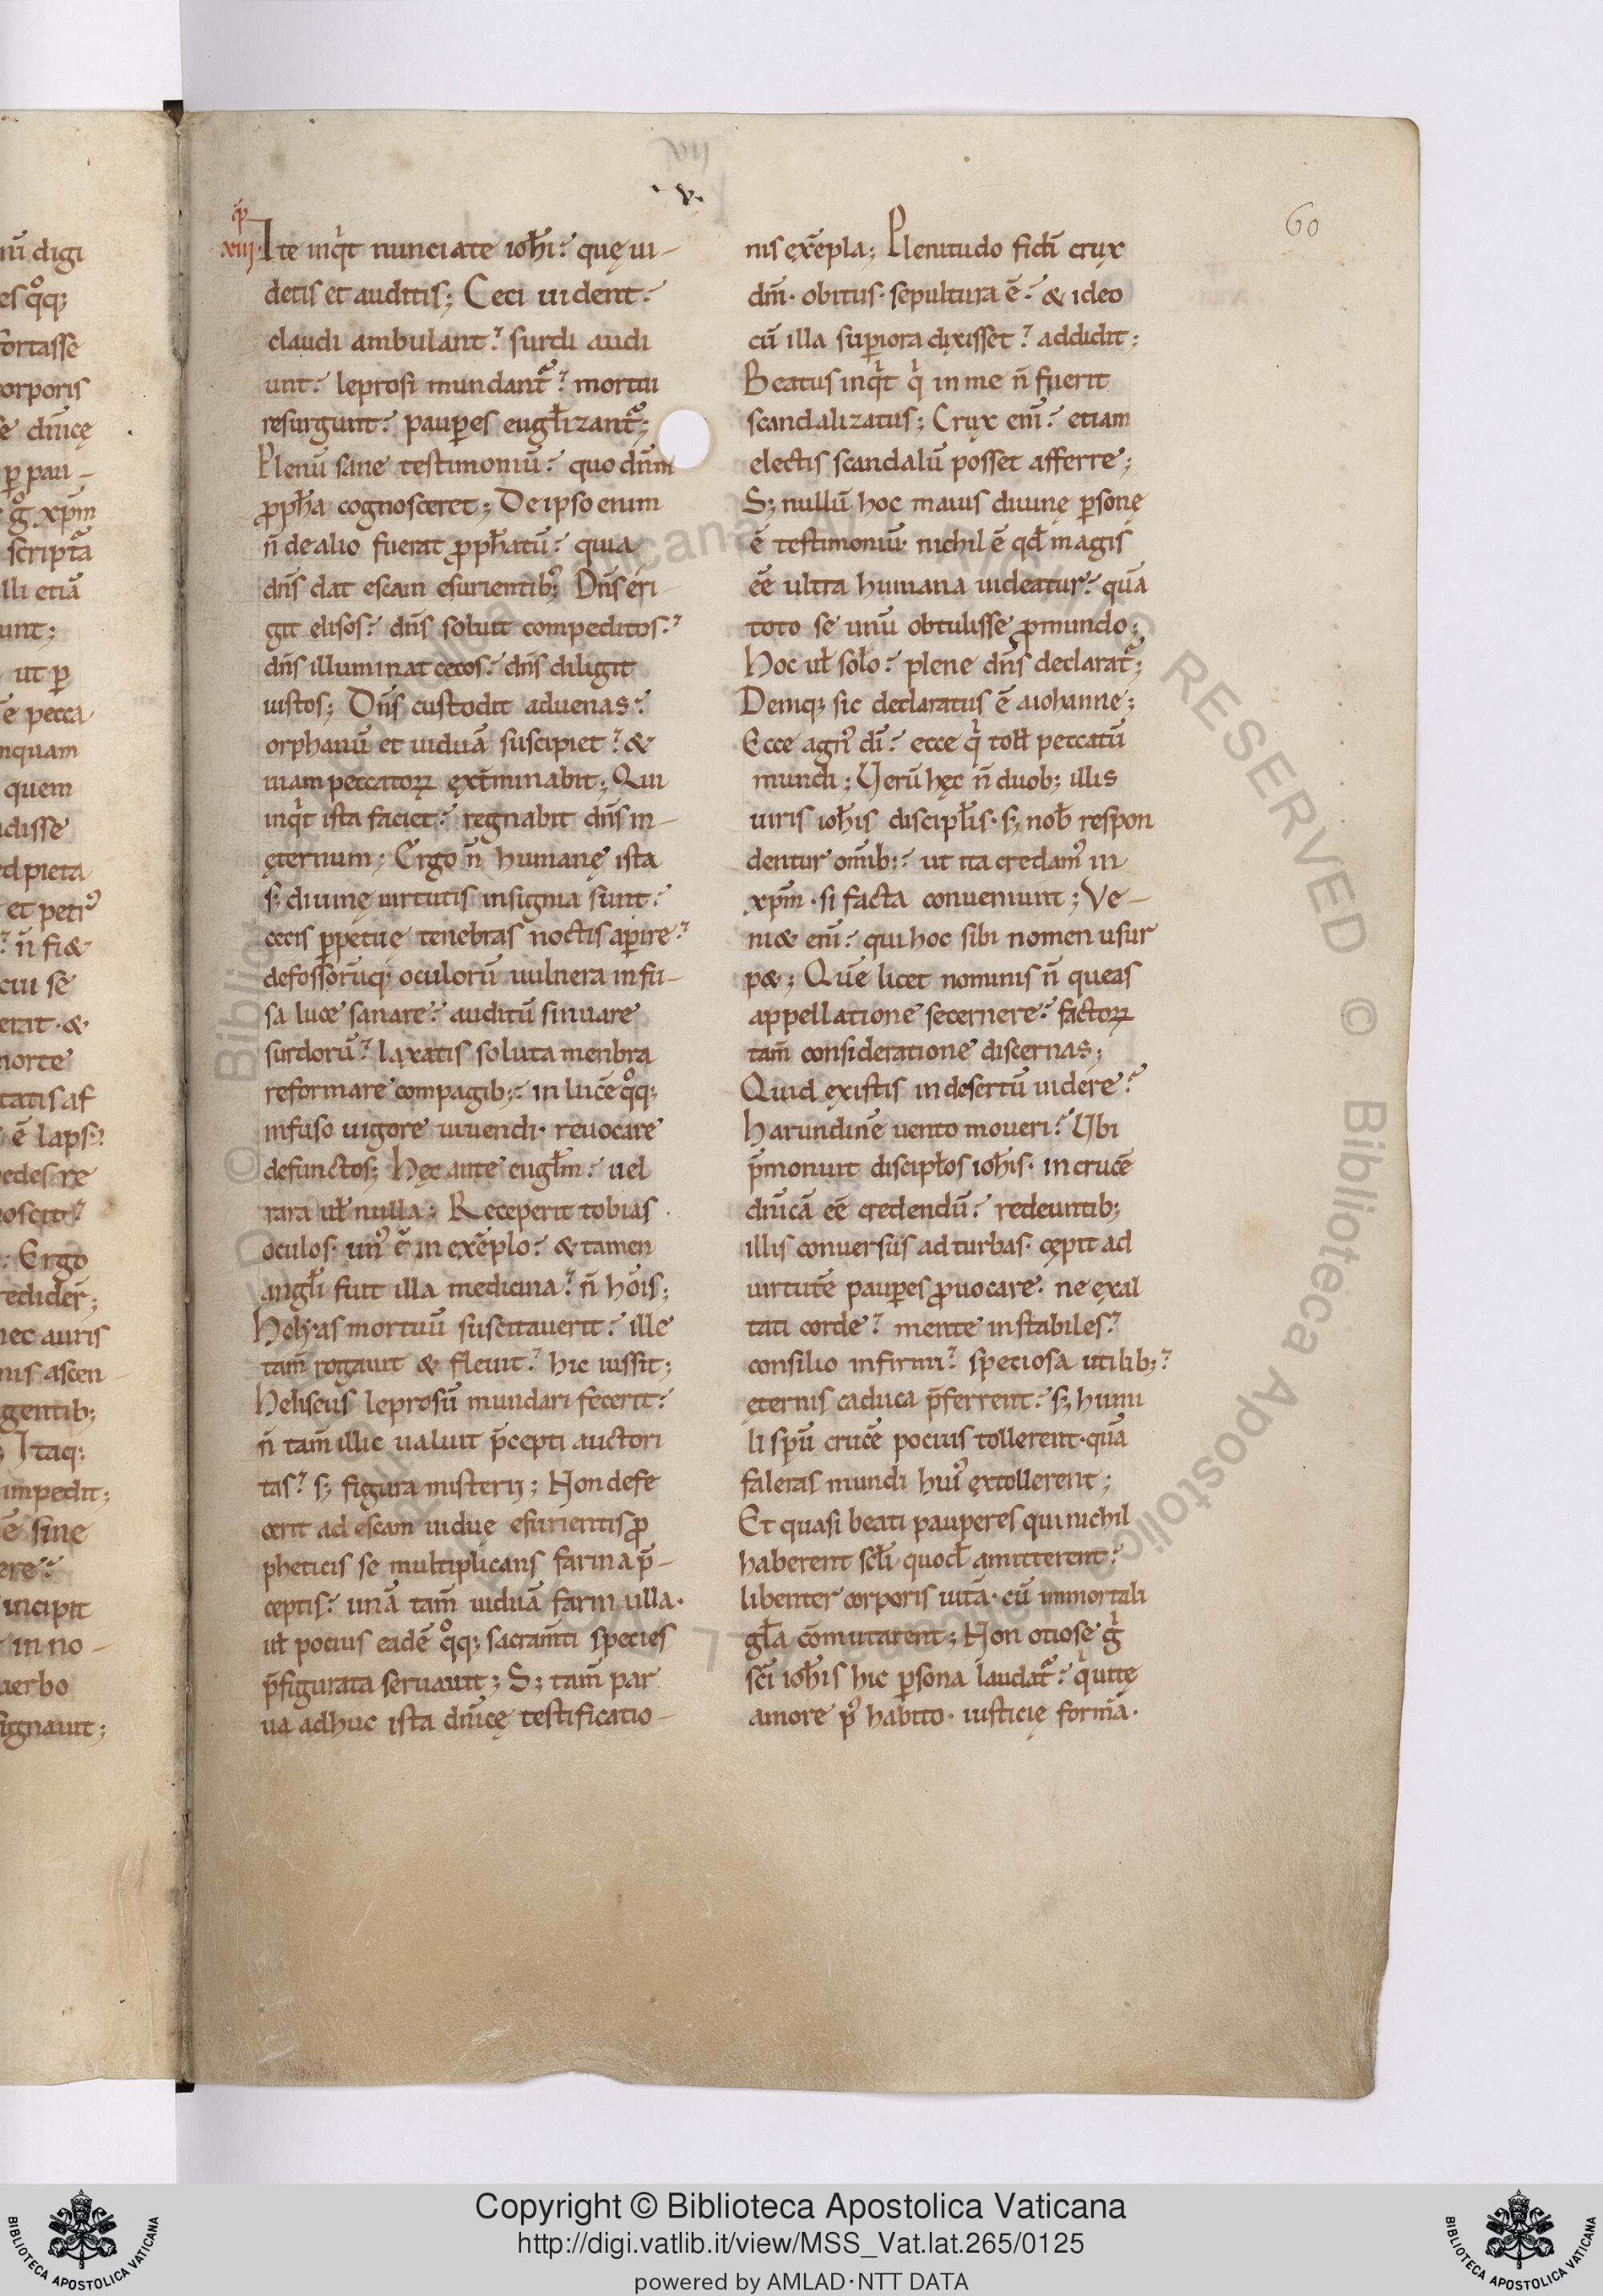 nū digi
es qͦq;
fortasse
corporis
se dn̄icę
ꝑ pau-
g̊ xp̄m
scriptā
illi etiā
unt;
ut ꝑ
ē pecca
nquam
quem
disse
ed pieta
et petiꝰ
n̄ fi&
cui se
erat · &
morte
tatis af
ē laps
pedes re
noscit?
Ergo
redider̄;
nec auris
nis ascen-
gentib;
Itaq;
impedit;
ē sine
ere?
incipit
in no-
uerbo
signauit;
.v.
60
cp̄
xiij. Ite inqͥt nunciate ioh̄i? quę ui-
detis et auditis; Ceci uident?
claudi ambulant? surdi audi
unt? leprosi mundant᷑? mortui
resurgunt? pauꝑes eugl̄izant᷑;
Plenū sane testimoniū? quo dn̄m
ꝓph̄a cognosceret; De ipso enim
n̄ de alio fuerat ꝓph̄atū? quia
dn̄s dat escam esurientibꝰ; Dn̄s eri-
git elisos? dn̄s soluit compeditos?
dn̄s illuminat cecos? dn̄s diligit
iustos; Dn̄s custodit aduenas?
orphanū et uiduā suscipiet? &
uiam peccatoꝝ ext̄minabit; Qui
inqͥt ista faciet? regnabit dn̄s in-
ęternum; Ergo n̄ humanę ista
s; diuinę uirtutis insignia sunt?
cecis ꝑpetuę tenebras noctis aꝑire?
defossorūq; oculorū uulnera infu-
sa luce sanare? auditū sinuare
surdorū? laxatis soluta menbra
reformare compagib;? in lucē qͦq;
infuso uigore uiuendi· reuocare
defunctos; Hęc ante eugl̄m? uel
rara ul̄ nulla; Receperit tobias
oculos· unꝰ ē in exēplo? & tamen
angl̄i fuit illa medicina? n̄ hōis;
Helyas mortuū suscitauerit? ille
tam̄ rogauit & fleuit? hic iussit;
Heliseus leprosū mundari fecerit?
n̄ tam̄ illic ualuit p̄cepti auctori
tas? s; figura misterij; Non defe
cerit ad escam uidue esurientis ꝓ
pheticis se multiplicans farina p̄-
ceptis? unā tam̄ uiduā farin ulla·
ul̄ pocius eadē qͦq; sacram̄ti species
p̄figurata seruauit; S; tam̄ par
ua adhuc ista dn̄icę testificatio-
nis exēpla; Plenitudo fidi crux
dm̄· obitus· sepultura ē? & ideo
cū illa suꝑiora dixisset? addidit;
Beatus inqͥt qͥ in me n̄ fuerit
scandalizatus; Crux eni̅? etiam
electis scandalū posset afferre;
S; nullū hoc maius diuinę ꝑsonę
ē testimoniū· nichil ē qd̄ magis
eē ultra humana uideatur? quā
toto se unū obtulisse ꝓ mundo;
Hoc ul̄ solo? plene dn̄s declarat᷑;
Deniq; sic declaratus ē a iohanne;
Ecce agnꝰ dī? ecce qͥ toll̄ peccatū
mundi; Verū hęc n̄ duob; illis
uiris ioh̄is discipl̄is· s; nob̄ respon
dentur om̄ib;? ut ita credamꝰ in
xpm̄· si facta conueniunt; Ve-
ni& eni̅? qui hoc sibi nomen usur
p&; Quē licet nominis n̄ queas
appellatione secernere? factoꝝ
tam̄ consideratione discernas;
Quid existis in desertū uidere?
Harundinē uento moueri? Vbi
p̄monuit discipl̄os ioh̄is· in crucē
dn̄icā eē credendū? redeuntib;
illis conuersus ad turbas· cępit ad
uirtutē pauꝑes ꝓuocare· ne exal
tati corde? mente instabiles?
consilio infirmi? spetiosa utilib;?
ęternis caduca p̄ferrent? s; humi
li spū crucē pocius tollerent· quā
faleras mundi huiꝰ extollerent;
Et quasi beati pauperes qui nichil
haberent scl̄i quod amitterent?
libenter corporis uitā· cū immortali
gl̄a cōmutarent; Non otiose gͥ
scī ioh̄is hic ꝑsona laudat᷑? qͥ uitę
amore pꝰ habito· iusticię formā·
Copyright © Biblioteca Apostolica Vaticana
http://digi.vatlib.it/view/MSS_Vat.lat.265/0125
powered by AMLAD·NTT DATA
BIBLIOTECA APOSTOLICA VATICANA
BIBLIOTECA APOSTOLICA VATICANA